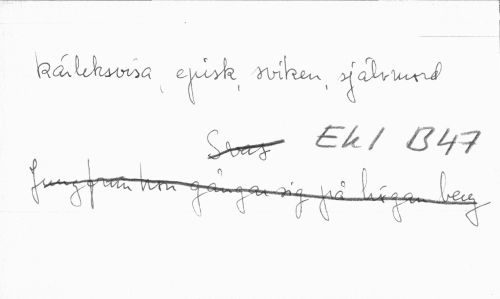 kärleksvisa, episk, sviken, självmord
Svas Ek1 B47
Jungfrun hon gångar sig på högan berg